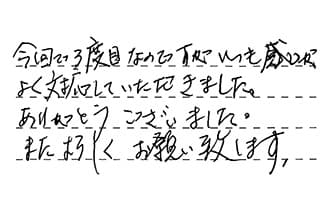 今回で3度目なのですがいつも感じが
よく対応していただきました。
ありがとうございました。
またよろしくお願い致します。